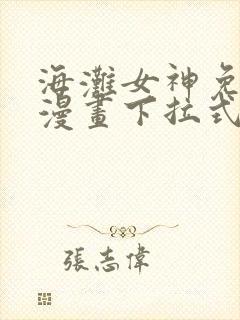 海灘女神免
漫畫下拉式
張志偉